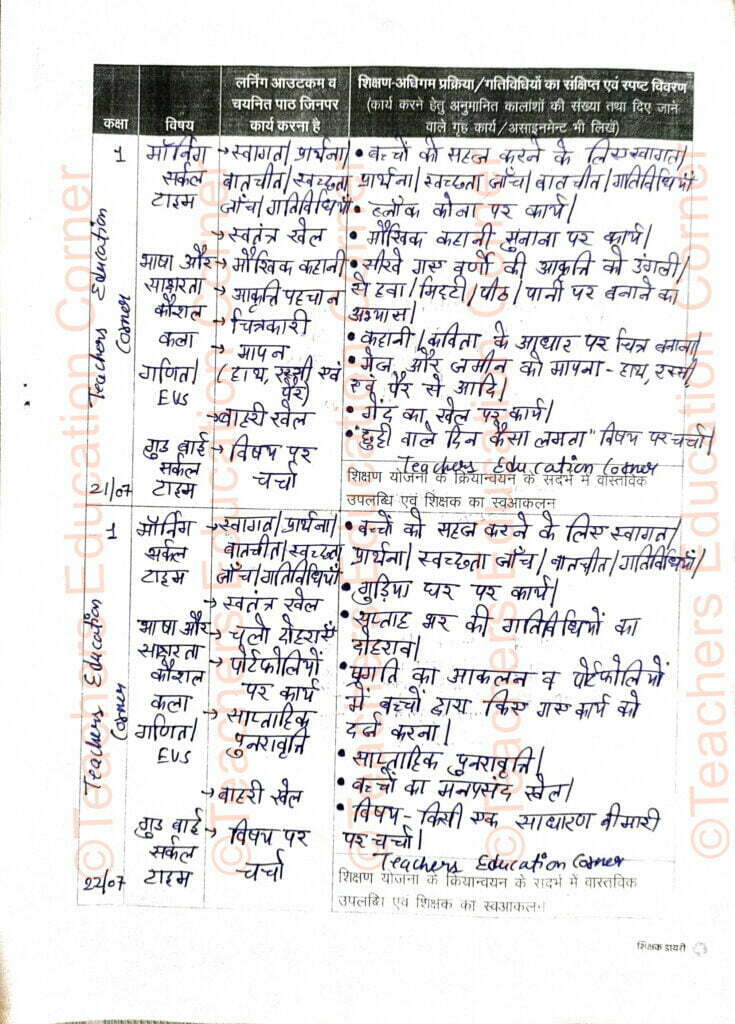 कक्षा
विषय
लर्निंग आउटकम व
चयनित पाठ जिनपर
कार्य करना है
शिक्षण-अधिगम प्रक्रिया/गतिविधियों का संक्षिप्त एवं स्पष्ट विवरण
(कार्य करने हेतु अनुमानित कालांशों की संख्या तथा दिए जाने
वाले गृह कार्य/असाइनमेंट भी लिखें)
1
Teachers Education
Corner
21/07
मॉर्निंग
सर्कल
टाइम
भाषा और
साक्षरता
कौशल
कला
गणित/
EVS
गुड बाई
सर्कल
टाइम
→ स्वागत/प्रार्थना/
बातचीत/स्वच्छता
जाँच/गतिविधियाँ
→ स्वतंत्र खेल
→ मौखिक कहानी
→ आकृति पहचान
→ चित्रकारी
→ मापन
(हाथ, रस्सी एवं
पैर)
→ बाहरी खेल
→ विषय पर
चर्चा
• बच्चों को सहज करने के लिए स्वागत/
प्रार्थना/स्वच्छता जाँच/बातचीत/गतिविधियाँ
• ब्लॉक कोना पर कार्य।
• मौखिक कहानी सुनाना पर कार्य।
• सीखे गए वर्णों की आकृति को उंगली/
से हवा/मिट्टी/पीठ/पानी पर बनाने का
अभ्यास।
• कहानी/कविता के आधार पर चित्र बनाना।
• मेज और जमीन को मापना - हाथ, रस्सी
एवं पैर से आदि।
• गेंद का खेल पर कार्य।
• "छुट्टी वाले दिन कैसा लगता" विषय पर चर्चा।
Teachers Education Corner
शिक्षण योजना के क्रियान्वयन के संदर्भ में वास्तविक
उपलब्धि एवं शिक्षक का स्वआकलन
1
Teachers Education
Corner
22/07
मॉर्निंग
सर्कल
टाइम
भाषा और
साक्षरता
कौशल
कला
गणित/
EVS
गुड बाई
सर्कल
टाइम
→ स्वागत/प्रार्थना/
बातचीत/स्वच्छता
जाँच/गतिविधियाँ
→ स्वतंत्र खेल
→ चलो दोहराएँ
→ पोर्टफोलियों
पर कार्य
→ साप्ताहिक
पुनरावृत्ति
→ बाहरी खेल
→ विषय पर
चर्चा
• बच्चों को सहज करने के लिए स्वागत/
प्रार्थना/स्वच्छता जाँच/बातचीत/गतिविधियाँ/
• गुड़िया घर पर कार्य।
• सप्ताह भर की गतिविधियों का
दोहराव।
• प्रगति का आकलन व पोर्टफोलियों
में बच्चों द्वारा किए गए कार्य को
दर्ज करना।
• साप्ताहिक पुनरावृत्ति।
• बच्चों का मनपसंद खेल।
• विषय - किसी एक साधारण बीमारी
पर चर्चा।
Teachers Education Corner
शिक्षण योजना के क्रियान्वयन के संदर्भ में वास्तविक
उपलब्धि एवं शिक्षक का स्वआकलन
शिक्षक डायरी
©Teachers Education Corner
©Teachers Education Corner
©Teachers Education Corner
©Teachers Education Corner
©Teachers Education Corner